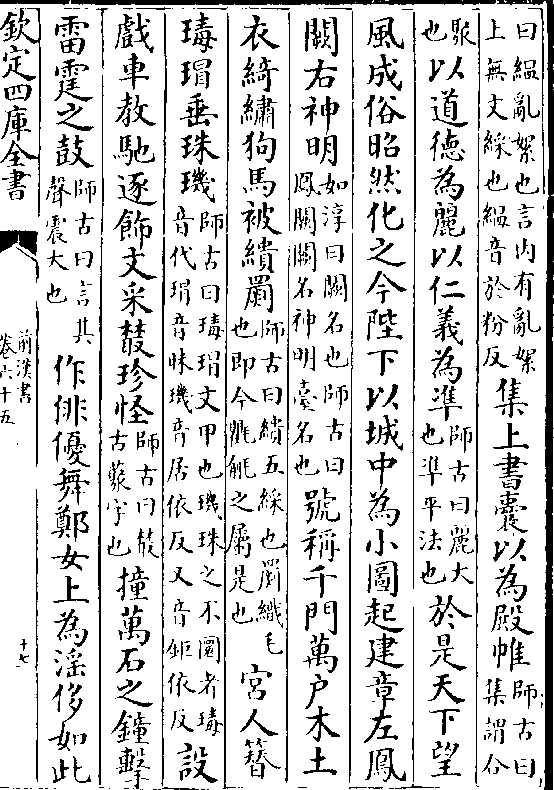 曰緼亂絮也言内有亂絮上無文綵也緼音於粉反集上書囊以為殿帷師古曰集謂合
聚也以道徳為麗以仁義為凖師古曰麗大也凖平法也於是天下望
風成俗昭然化之今陛下以城中為小圖起建章左鳳
闕右神明如淳曰闕名也師古曰鳳闕闕名神明臺名也號稱千門萬户木土
衣綺繡狗馬被繢罽師古曰繢五綵也罽織毛也即今氍毹之屬是也宫人簪
瑇瑁垂珠璣師古曰瑇瑁文甲也璣珠之不圜者瑇音代瑁音昧璣音居依反又音鉅依反設
戲車教馳逐飾文采䕺珍怪師古曰䕺古叢字也撞萬石之鐘擊
雷霆之鼓師古曰言其聲震大也作俳優舞鄭女上為淫侈如此
欽定四庫全書
前漢書
卷六十五
十七